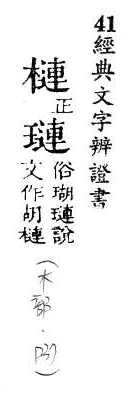 41經典文字辨證書
槤正
璉俗瑚璉說
文作胡槤
(木部.